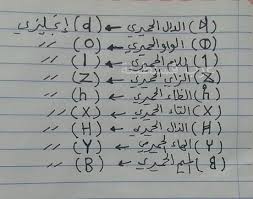 (𐩵) الدال الحميري ← (d) إنجليزي
(𐩥) الواو الحميري ← (O) //
(1) اللام الحميري ← (l) //
(𐩸) الزاي الحميري ← (Z) //
(𐩼) الظاء الحميري ← (h) //
(X) التاء الحميري ← (X) //
(H) الذال الحميري ← (H) //
(Y) الهاء الحميري ← (Y) //
(𐩣) الميم الحميري ← (B) //